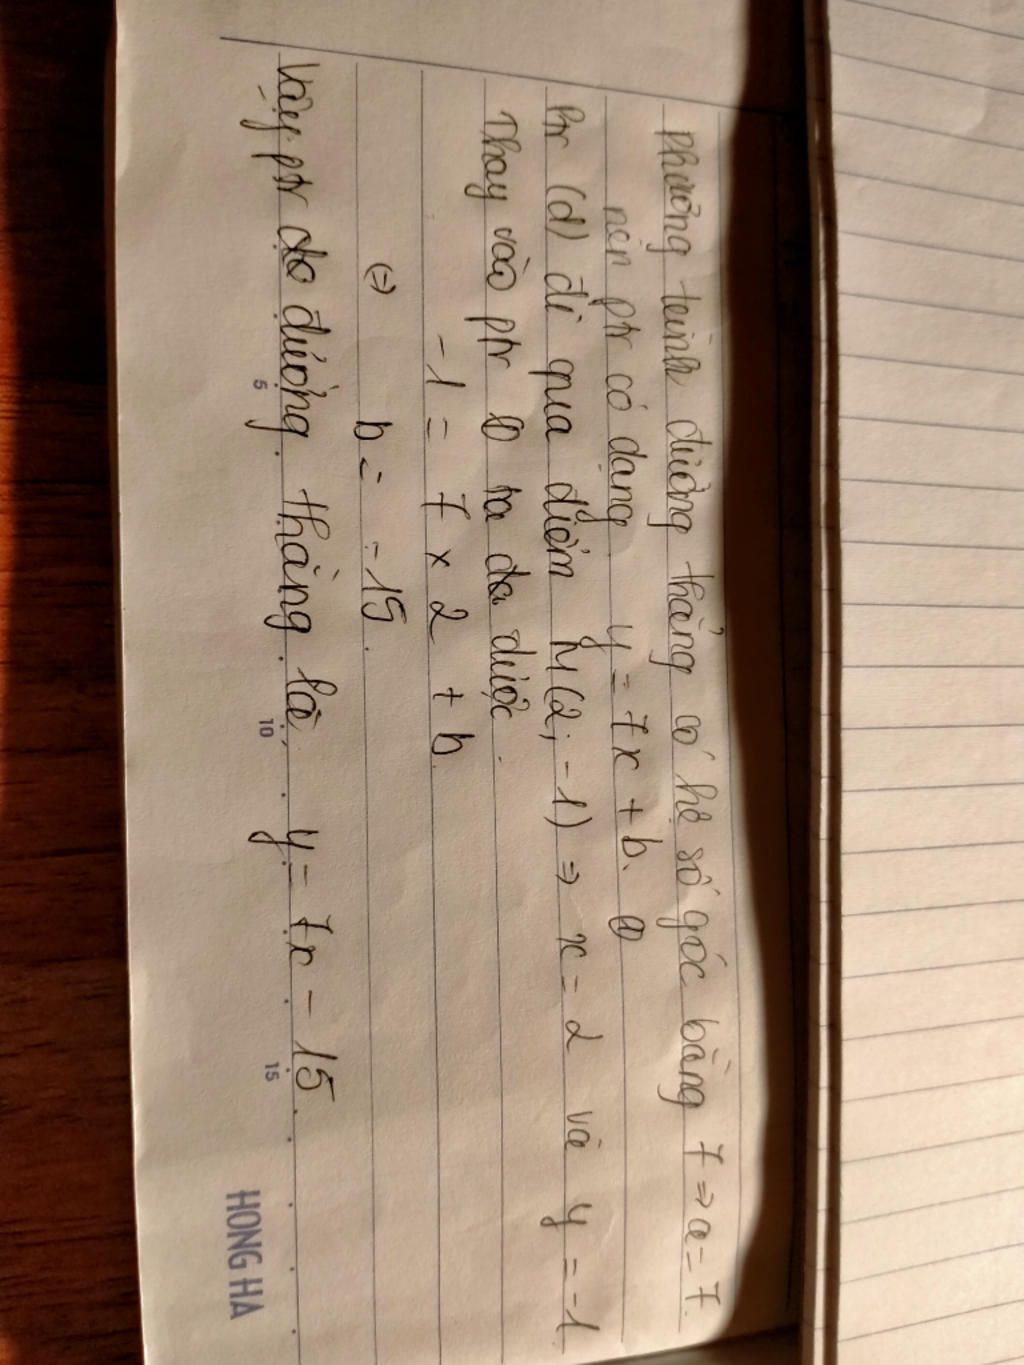 Phương trình đường thẳng có hệ số góc bằng 7 ⇒ a = 7.
nên ptr có dạng y = 7x + b. ①
Ptr (d) đi qua điểm M(2; -1) ⇒ x = 2 và y = -1
Thay vào ptr ① ta đa được.
-1 = 7 × 2 + b.
(=) b = -15.
Vậy ptr đo đường thẳng là, y = 7x - 15.
5 10 15
HONG HA